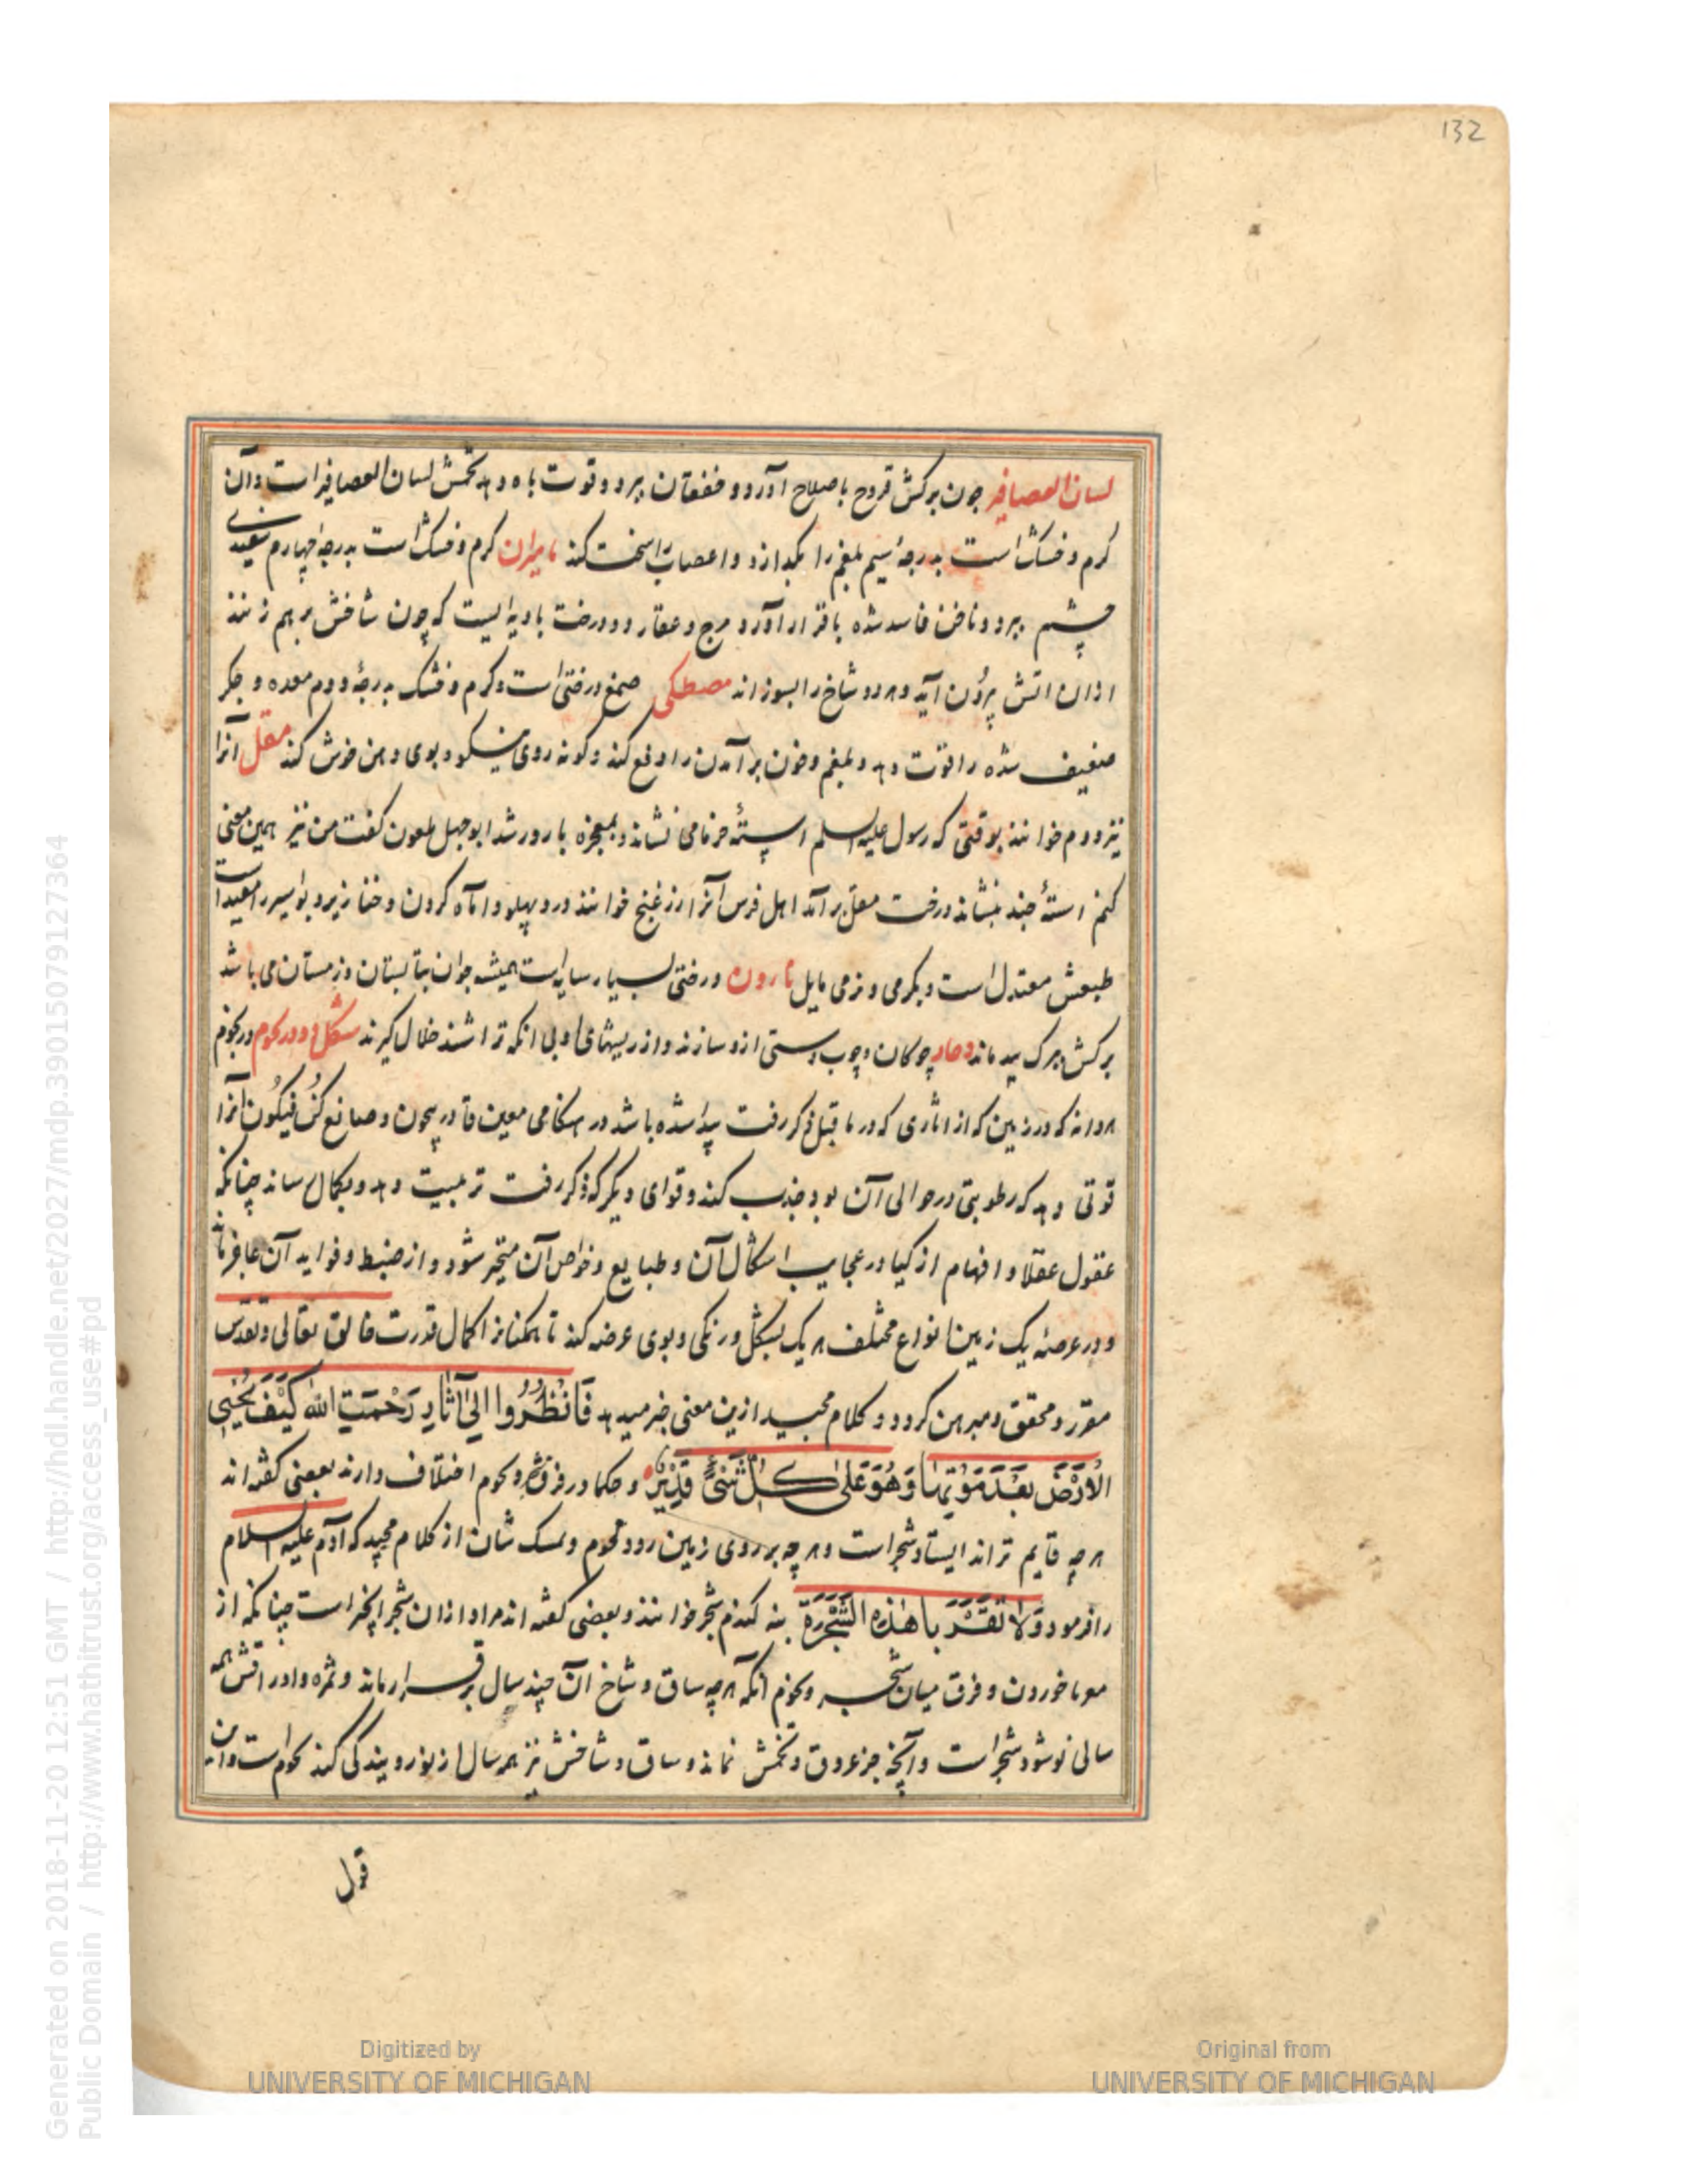 132
لسان العصافیر چون برکش قروح باصلاح آورد و خفقان ببرد و قوت باه دهد تخمش لسان العصافیر است و آن
کرم و خشک است بدرجهٔ سیم بلغم را بکدازد و اعصاب را سخت کند مامیران کرم و خشک است بدرجهٔ چهارم سفیدی
چشم ببرد و ناخن فاسد شده باقرار آورد مرخ و عفار دو درخت بادیه ایست که چون شاخش بر هم زنند
ازان اتش بیرون آید و هر دو شاخ را بسوزاند مصطکی صمغ درختی است و کرم و خشک بدرجهٔ دوم معده و جکر
ضعیف شده را قوت دهد و بلغم و خون برآمدن را دفع کند و کونه روی نیکو و بوی دهن خوش کند مقل آنرا
نیز دوم خوانند بوقتی که رسول علیه السلم استهٔ خرمامی نشاند و بمعجزه بارور شد ابوجهل ملعون کفت من نیز همین معنی
کنم استهٔ چند بنشاند درخت مقل برآمد اهل فرس آنرا ارزغنج خوانند درد پهلو و اماه کردن و خنازیر و بواسیر را مفید است
طبعش معتدل است و بکرمی و نرمی مایل نارون درختی بسیار سایه است همیشه جوان بتابستان و زمستان می باشد
برکش ببرک بید ماند چوکان و چوب دستی ازو سازند و از ریشهای او بی انکه تراشند خلال کیرند
هر دانه که در زمین که از اثاری که در ماقبل ذکر رفت پیدا شده باشد در هنکامی معین قادر بیچون و صانع کن فیکون آنرا
قوتی دهد که رطوبتی در حوالی آن بود جذب کند و قوای دیکر که ذکر رفت تربیت دهد و بکمال رساند چنانکه
عقول عقلا و افهام ازکیا در عجایب اشکال آن و طبایع و خواص آن متحیر شود و از ضبط و فواید آن عاجز ماند
و در عرصهٔ یک زمین انواع مختلف هر یک بشکل و رنکی و بوی عرضه کند تا همکنانرا کمال قدرت خالق تعالی و تقدس
مقرر و محقق و مبرهن کردد و کلام مجید ازین معنی خبر میدهد فَانْظُرُوا اِلیٰ آثَارِ رَحْمَتِ اللهِ کَیْفَ یُحْیِی
الاَرْضَ بَعْدَ مَوْتِهَا وَهُوَ عَلیٰ کُلِّ شَیْءٍ قَدِیْرٌ و حکما در فرق شجر و نجوم اختلاف دارند بعضی کفته اند
هر چه قایم تراند ایستاد شجر است و هر چه بر روی زمین رود نجوم و تمسک شان از کلام مجید که آدم علیه السلام
را فرمود وَلَا تَقْرَبَا هٰذِهِ الشَّجَرَةَ بنه کندم شجر خوانند و بعضی کفته اند مراد ازان شجر انجیر است چنانکه از
خوردن و فرق میان شجر و نجوم آنکه هر چه ساق و شاخ آن چند سال برقرار ماند و ثمره و اوراقش همه
سالی نو شود شجر است و آنچه جز عروق و تخمش نماند و ساق و شاخش نیز همه سال از بذر رویندکی کند نجوم است و این
قول
Generated on 2018-11-20 12:51 GMT / http://hdl.handle.net/2027/mdp.39015079127364
Public Domain / http://www.hathitrust.org/access_use#pd
Digitized by
UNIVERSITY OF MICHIGAN
Original from
UNIVERSITY OF MICHIGAN